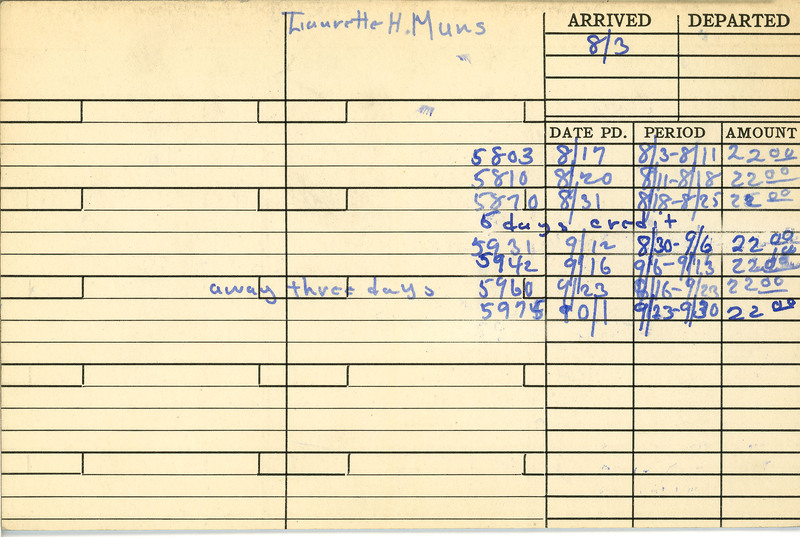 Laurette H. Muns
ARRIVED DEPARTED
8/3
DATE PD. PERIOD AMOUNT
5803 8/17 8/3-8/11 22 00
5810 8/20 8/11-8/18 22 00
5870 8/31 8/18-8/25 22 00
5 days credit
5931 9/12 8/30-9/6 22 00
5942 9/16 9/6-9/13 22 00
away three days 5960 9/23 9/16-9/23 22 00
5975 10/1 9/23-9/30 22 00